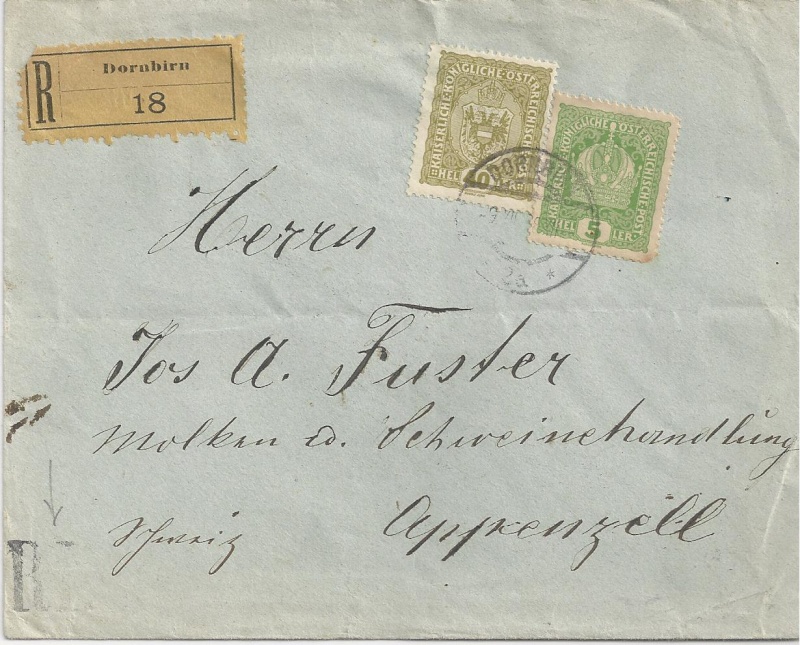 R Dornbirn
18
KAISERLICHE KÖNIGLICHE ÖSTERREICHISCHE POST
HELLER
KAISERLICHE KÖNIGLICHE ÖSTERREICHISCHE POST
5
HELLER
DORNBIRN
2a *
Herrn
Jos A. Fuster
Molken u. Schweinehandlung
Appenzell
Schweiz
R